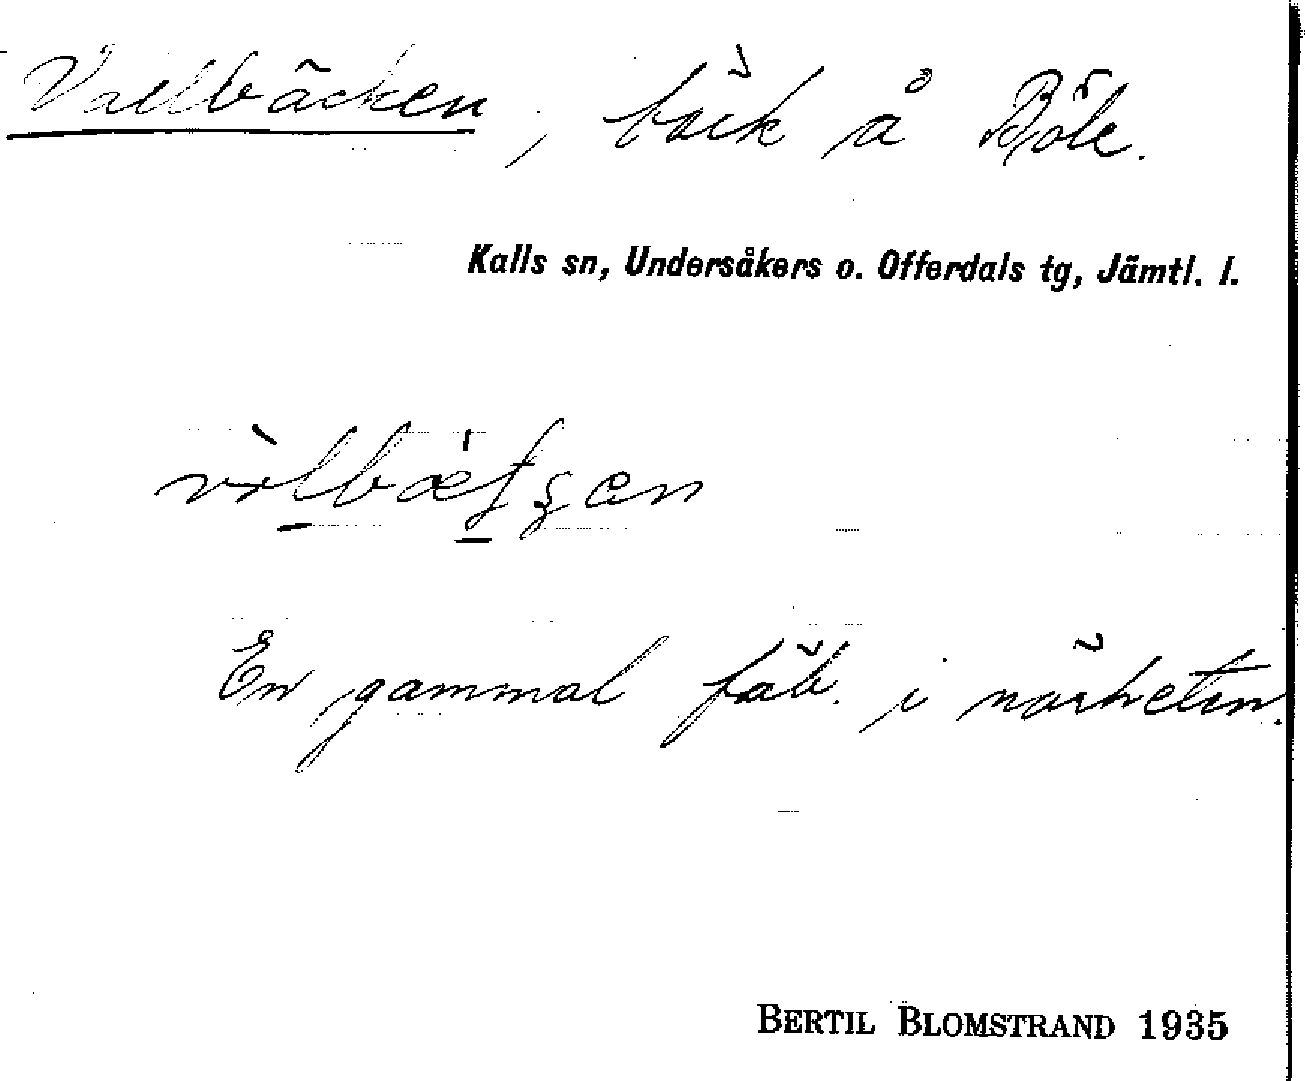 Vallbäcken, bäck å Böle.
Kalls sn, Undersåkers o. Offerdals tg, Jämtl. l.
En gammal fäb. i närheten.
BERTIL BLOMSTRAND 1935